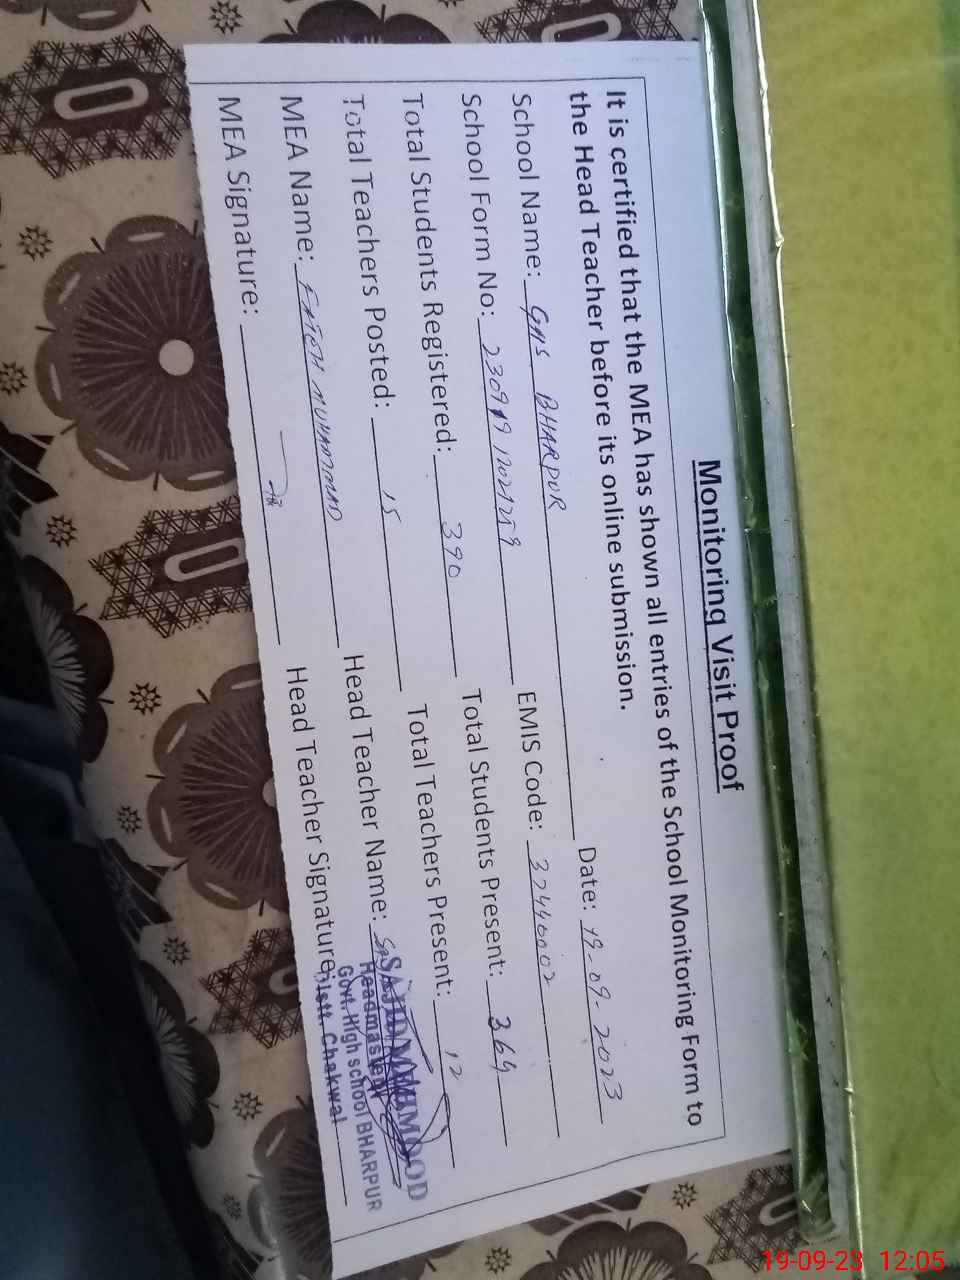 Monitoring Visit Proof
It is certified that the MEA has shown all entries of the School Monitoring Form to
the Head Teacher before its online submission.
School Name: GHS BHARPUR Date: 19-09-2023
School Form No: EMIS Code: 37440002
Total Students Registered: 390 Total Students Present: 364
Total Teachers Posted: 15 Total Teachers Present: 12
MEA Name: FATEH MUHAMMAD Head Teacher Name:
MEA Signature: Head Teacher Signature:
SAJID MEHMOOD
Headmaster
Govt. High school BHARPUR
Distt. Chakwal
19-09-23 12:05